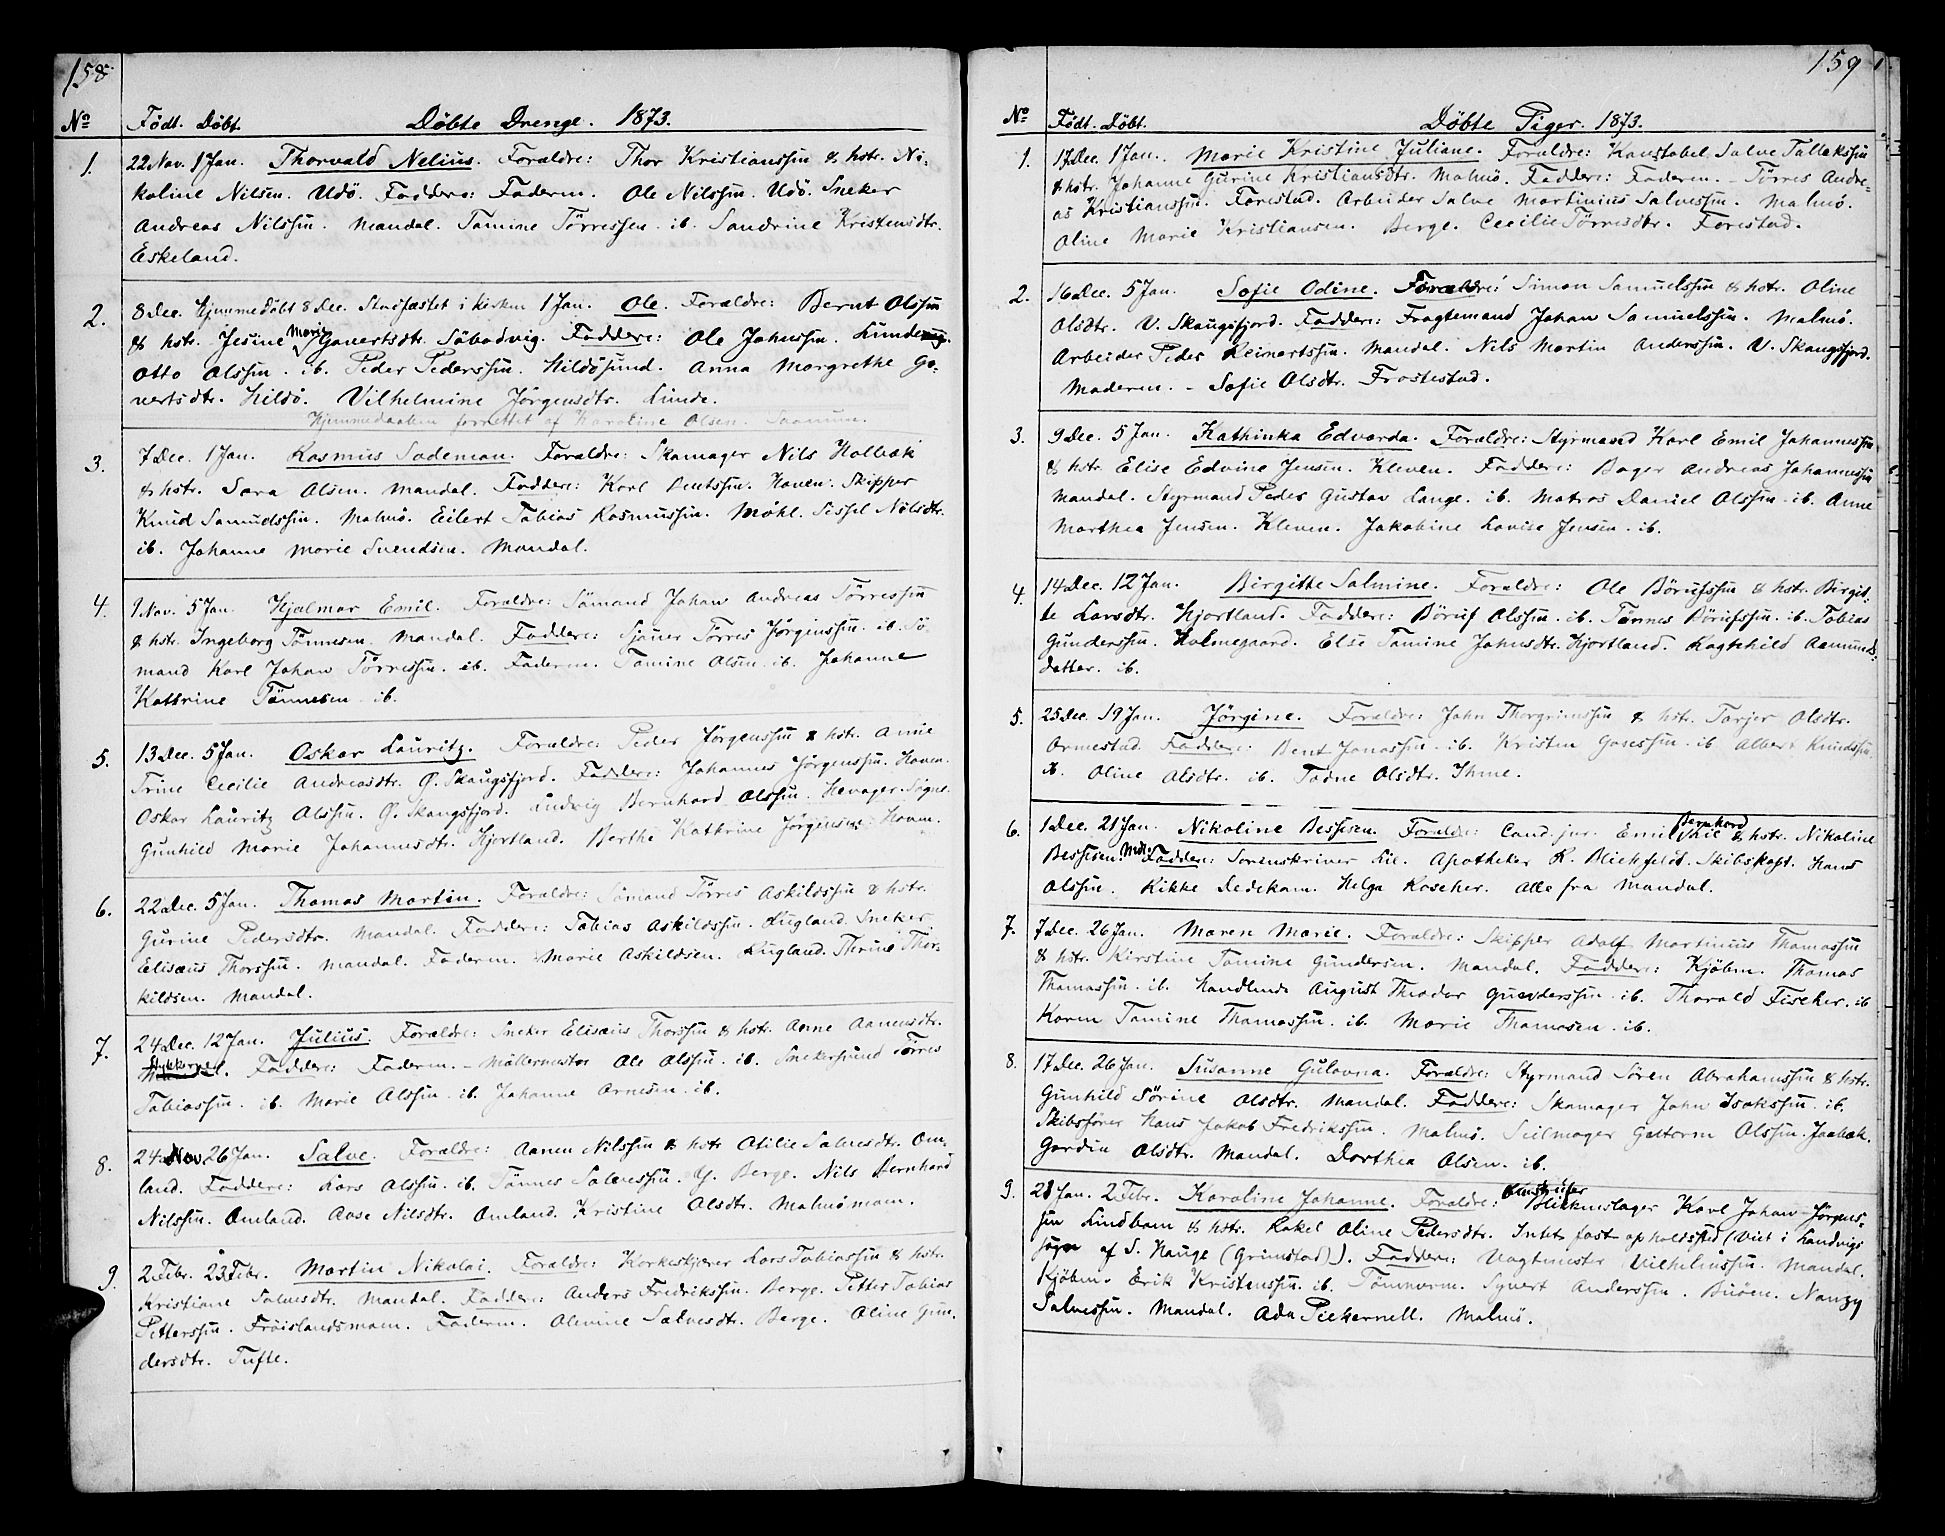 158
No Födt. Döbt. Döbte Drenge. 1873.
1. 22 Nov. 1 Jan. Thorvald Nelius. Forældre: Thor Kristianssøn & hstr. Ni-
koline Nilsen. Udö. Faddere: Faderen. Ole Nilssøn. Udö. Sneker
Andreas Nilssøn. Mandal. Tamine Törressen. ib. Sandrine Kristensdtr.
Eskeland.
2. 8 Dec. Hjemmedöbt 8 Dec. Stadfæstet i Kirken 1 Jan. Ole. Forældre: Bernt Olssøn
& hstr. Jesine Marie Govertsdtr. Säbodvig. Faddere: Ole Jahnssøn. Lunde.
Otto Olssøn. ib. Peder Pederssøn. Hildösund. Anna Margrethe Go-
vertsdtr. Hildö. Vilhelmine Jörgensdtr. Lunde.
Hjemmedaaben forrettet af Karoline Olsen.
3. 7 Dec. 1 Jan. Rasmus Sodeman. Forældre: Skomager Nils Holbæk
& hstr. Sara Olsen. Mandal. Faddere: Karl Bentssøn. Haven. Skipper
Knud Samuelssøn. Malmö. Eilert Tobias Rasmussøn. Möhl. Sissel Nilsdtr.
ib. Johanne Marie Svendsen. Mandal.
4. 9 Nov. 5 Jan. Hjalmar Emil. Forældre: Sömand Johan Andreas Törressøn
& hstr. Ingeborg Tönnesen. Mandal. Faddere: Sjöuer Törres Jörgenssøn. ib. Sö-
mand Karl Johan Törressøn. ib. Faderen. Tamine Olsen. ib. Johanne
Kathrine Tönnesen. ib.
5. 13 Dec. 5 Jan. Oskar Lauritz. Forældre: Peder Jörgenssøn & hstr. Anne
Trine Cecilie Andreasdtr. Ö. Skaugsfjord. Faddere: Johannes Jörgenssøn. Haven.
Oskar Lauritz Olssøn. Ö. Skaugsfjord. Ludvig Bernhard Olssøn. Hevager. Sögne.
Gunhild Marie Johannesdtr. Hjortland. Berthe Kathrine Jörgensen. Haven.
6. 22 Dec. 5 Jan. Thomas Martin. Forældre: Sömand Törres Askildssøn & hstr.
Gurine Pedersdtr. Mandal. Faddere: Tobias Askildssøn. Lugland. Sneker
Elisæus Thorssøn. Mandal. Faderen. Marie Askildsen. Lugland. Therine Thor-
kildsen. Mandal.
7. 24 Dec. 12 Jan. Julius. Forældre: Sneker Elisæus Thorssøn & hstr. Anne Aanensdtr.
Faddere: Faderen. - Möllermester Ole Olssøn. ib. Snekersvend Törres
Tobiassøn. ib. Marie Olssøn. ib. Johanne Arnesen. ib.
8. 24 Nov. 26 Jan. Salve. Forældre: Aanen Nilssøn & hstr. Otilie Salvesdtr. Om-
land. Faddere: Lars Olssøn. ib. Tönnes Salvessøn. Y. Berge. Nils Bernhard
Nilssøn. Omland. Aase Nilsdtr. Omland. Kristine Olsdtr. Malmömoen.
9. 2 Febr. 23 Febr. Martin Nikolai. Forældre: Korkeskjærer Lars Tobiassøn & hstr.
Kristiane Salvesdtr. Mandal. Faddere: Anders Fredrikssøn. Berge. Petter Tobias
Petterssøn. Fröislandsmoen. Faderen. Olevine Salvesdtr. Berge. Oline Gun-
dersdtr. Tufte.
159
No Födt. Döbt. Döbte Piger. 1873.
1. 17 Dec. 1 Jan. Marie Kristine Juliane. Forældre: Konstabel Salve Tallakssøn
& hstr. Johanne Gurine Kristiansdtr. Malmö. Faddere: Faderen. - Törres Andre-
as Kristianssøn. Farestad. Arbeider Salve Martinius Salvessøn. Malmö.
Oline Marie Kristiansen. Berge. Cecilie Törresdtr. Farestad.
2. 16 Dec. 5 Jan. Sofie Odine. Forældre: Simon Samuelssøn & hstr. Oline
Olsdtr. V. Skaugsfjord. Faddere: Fragtemand Johan Samuelssøn. Malmö.
Arbeider Peder Reinertssøn. Mandal. Nils Martin Anderssøn. V. Skaugsfjord.
Moderen. - Sofie Olsdtr. Frostestad.
3. 9 Dec. 5 Jan. Kathinka Edvarda. Forældre: Styrmand Karl Emil Johannessøn
& hstr. Elise Edvine Jensen. Kleven. Faddere: Bager Andreas Johannessøn
Mandal. Styrmand Peder Gustav Lange. ib. Matros Daniel Olssøn. ib. Anne
Marthea Jensen. Kleven. Jakobine Lovise Jensen. ib.
4. 14 Dec. 12 Jan. Birgitte Salmine. Forældre: Ole Börufssøn & hstr. Birgit-
te Larsdtr. Hjortland. Faddere: Böruf Olssøn. ib. Tönnes Börufssøn. ib. Tobias
Gunderssøn. Holmegaard. Else Tamine Jahnsdtr. Hjortland. Ragnhild Aamunds-
datter. ib.
5. 25 Dec. 19 Jan. Jörgine. Forældre: John Thorgrimssøn & hstr. Tarjer Olsdtr.
Ormestad. Faddere: Bent Jonassøn. ib. Kristen Gosessøn. ib. Albert Knudssøn.
ib. Oline Olsdtr. ib. Tadne Olsdtr. Ihme.
6. 1 Dec. 21 Jan. Nikoline Bessesen. Forældre: Cand. jur. Emil Bernhard & hstr. Nikoline
Bessesen. Mdl. Faddere: Sorenskriver Lil. Apotheker R. Blichfeldt. Skibskapt. Hans
Olssøn. Rikke Dedekam. Helga Roscher. Alle fra Mandal.
7. 7 Dec. 26 Jan. Maren Marie. Forældre: Skipper Adolf Martinius Thomassøn
& hstr. Kirstine Tamine Gundersen. Mandal. Faddere: Kjöbm. Thomas
Thomassøn. ib. Handlende August Theodor Gunderssøn. ib. Thorald Fischer. ib
Karen Tamine Thomassøn. ib. Marie Thomasen. ib.
8. 17 Dec. 26 Jan. Susanne Gulovna. Forældre: Styrmand Sören Abrahamssøn & hstr.
Gunhild Sörine Olsdtr. Mandal. Faddere: Skomager John Isakssøn. ib.
Skibsförer Hans Jakob Fredrikssøn. Malmö. Seilmager Guttorm Olssøn. Jaabæk.
Gurdin Olsdtr. Mandal. Dorthea Olsen. ib.
9. 28 Jan. 2 Febr. Karoline Johanne. Forældre: Blikkenslager Karl Johan Jörgens-
søn Lindbom & hstr. Rakel Oline Pedersdtr. Intet fast opholdssted (Viet i Landvigs
sogn af S. Hauge (Grimstad)). Faddere: Vagtmester Vilhelmssøn. Mandal.
Kjöbm. Erik Kristenssøn. ib. Tömmerm. Syvert Anderssøn. Buöen. Nanzy
Salvessøn. Mandal. Ada Pickernell. Malmö.